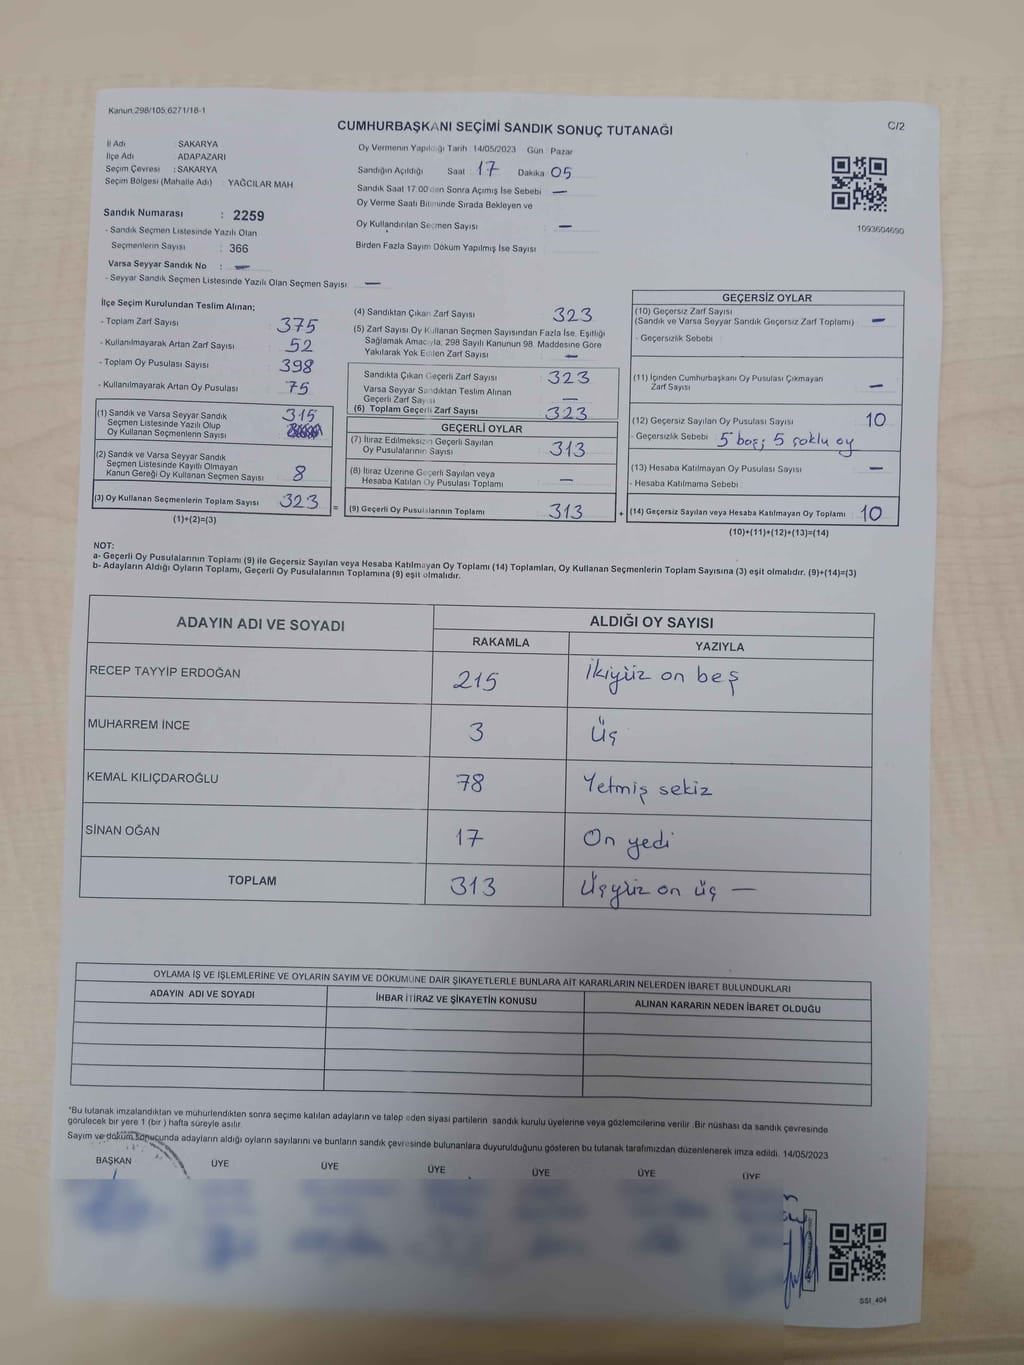 Kanun:298/105;6271/18-1
C/2
CUMHURBAŞKANI SEÇİMİ SANDIK SONUÇ TUTANAĞI
İl Adı : SAKARYA
İlçe Adı : ADAPAZARI
Seçim Çevresi : SAKARYA
Seçim Bölgesi (Mahalle Adı) : YAĞCILAR MAH
Sandık Numarası : 2259
- Sandık Seçmen Listesinde Yazılı Olan
Seçmenlerin Sayısı : 366
Varsa Seyyar Sandık No : —
- Seyyar Sandık Seçmen Listesinde Yazılı Olan Seçmen Sayısı: —
Oy Vermenin Yapıldığı Tarih : 14/05/2023 Gün : Pazar
Sandığın Açıldığı Saat 17 Dakika 05
Sandık Saat 17:00'den Sonra Açımış İse Sebebi —
Oy Verme Saati Bitiminde Sırada Bekleyen ve
Oy Kullandırılan Seçmen Sayısı : —
Birden Fazla Sayım Döküm Yapılmış İse Sayısı :
1093604690
İlçe Seçim Kurulundan Teslim Alınan;
- Toplam Zarf Sayısı 375
- Kullanılmayarak Artan Zarf Sayısı 52
- Toplam Oy Pusulası Sayısı 398
- Kullanılmayarak Artan Oy Pusulası 75
(1) Sandık ve Varsa Seyyar Sandık
Seçmen Listesinde Yazılı Olup
Oy Kullanan Seçmenlerin Sayısı 315
(2) Sandık ve Varsa Seyyar Sandık
Seçmen Listesinde Kayıtlı Olmayan
Kanun Gereği Oy Kullanan Seçmen Sayısı 8
(3) Oy Kullanan Seçmenlerin Toplam Sayısı 323
(1)+(2)=(3)
(4) Sandıktan Çıkan Zarf Sayısı 323
(5) Zarf Sayısı Oy Kullanan Seçmen Sayısından Fazla İse, Eşitliği
Sağlamak Amacıyla, 298 Sayılı Kanunun 98. Maddesine Göre
Yakılarak Yok Edilen Zarf Sayısı —
Sandıkta Çıkan Geçerli Zarf Sayısı 323
Varsa Seyyar Sandıktan Teslim Alınan
Geçerli Zarf Sayısı —
(6) Toplam Geçerli Zarf Sayısı 323
GEÇERLİ OYLAR
(7) İtiraz Edilmeksizin Geçerli Sayılan
Oy Pusulalarının Sayısı 313
(8) İtiraz Üzerine Geçerli Sayılan veya
Hesaba Katılan Oy Pusulası Toplamı —
= (9) Geçerli Oy Pusulalarının Toplamı 313
GEÇERSİZ OYLAR
(10) Geçersiz Zarf Sayısı
(Sandık ve Varsa Seyyar Sandık Geçersiz Zarf Toplamı) : —
- Geçersizlik Sebebi :
(11) İçinden Cumhurbaşkanı Oy Pusulası Çıkmayan
Zarf Sayısı —
(12) Geçersiz Sayılan Oy Pusulası Sayısı : 10
- Geçersizlik Sebebi : 5 boş; 5 çoklu oy
(13) Hesaba Katılmayan Oy Pusulası Sayısı : —
- Hesaba Katılmama Sebebi :
+ (14) Geçersiz Sayılan veya Hesaba Katılmayan Oy Toplamı : 10
(10)+(11)+(12)+(13)=(14)
NOT:
a- Geçerli Oy Pusulalarının Toplamı (9) ile Geçersiz Sayılan veya Hesaba Katılmayan Oy Toplamı (14) Toplamları, Oy Kullanan Seçmenlerin Toplam Sayısına (3) eşit olmalıdır. (9)+(14)=(3)
b- Adayların Aldığı Oyların Toplamı, Geçerli Oy Pusulalarının Toplamına (9) eşit olmalıdır.
ADAYIN ADI VE SOYADI
ALDIĞI OY SAYISI
RAKAMLA YAZIYLA
RECEP TAYYİP ERDOĞAN 215 İkiyüz on beş
MUHARREM İNCE 3 üç
KEMAL KILIÇDAROĞLU 78 Yetmiş sekiz
SİNAN OĞAN 17 On yedi
TOPLAM 313 Üçyüz on üç —
OYLAMA İŞ VE İŞLEMLERİNE VE OYLARIN SAYIM VE DÖKÜMÜNE DAİR ŞİKAYETLERLE BUNLARA AİT KARARLARIN NELERDEN İBARET BULUNDUKLARI
ADAYIN ADI VE SOYADI İHBAR İTİRAZ VE ŞİKAYETİN KONUSU ALINAN KARARIN NEDEN İBARET OLDUĞU
*Bu tutanak imzalandıktan ve mühürlendikten sonra seçime katılan adayların ve talep eden siyasi partilerin sandık kurulu üyelerine veya gözlemcilerine verilir .Bir nüshası da sandık çevresinde
görülecek bir yere 1 (bir ) hafta süreyle asılır.
Sayım ve döküm sonucunda adayların aldığı oyların sayılarını ve bunların sandık çevresinde bulunanlara duyurulduğunu gösteren bu tutanak tarafımızdan düzenlenerek imza edildi. 14/05/2023
BAŞKAN ÜYE ÜYE ÜYE ÜYE ÜYE ÜYE
SSI_404